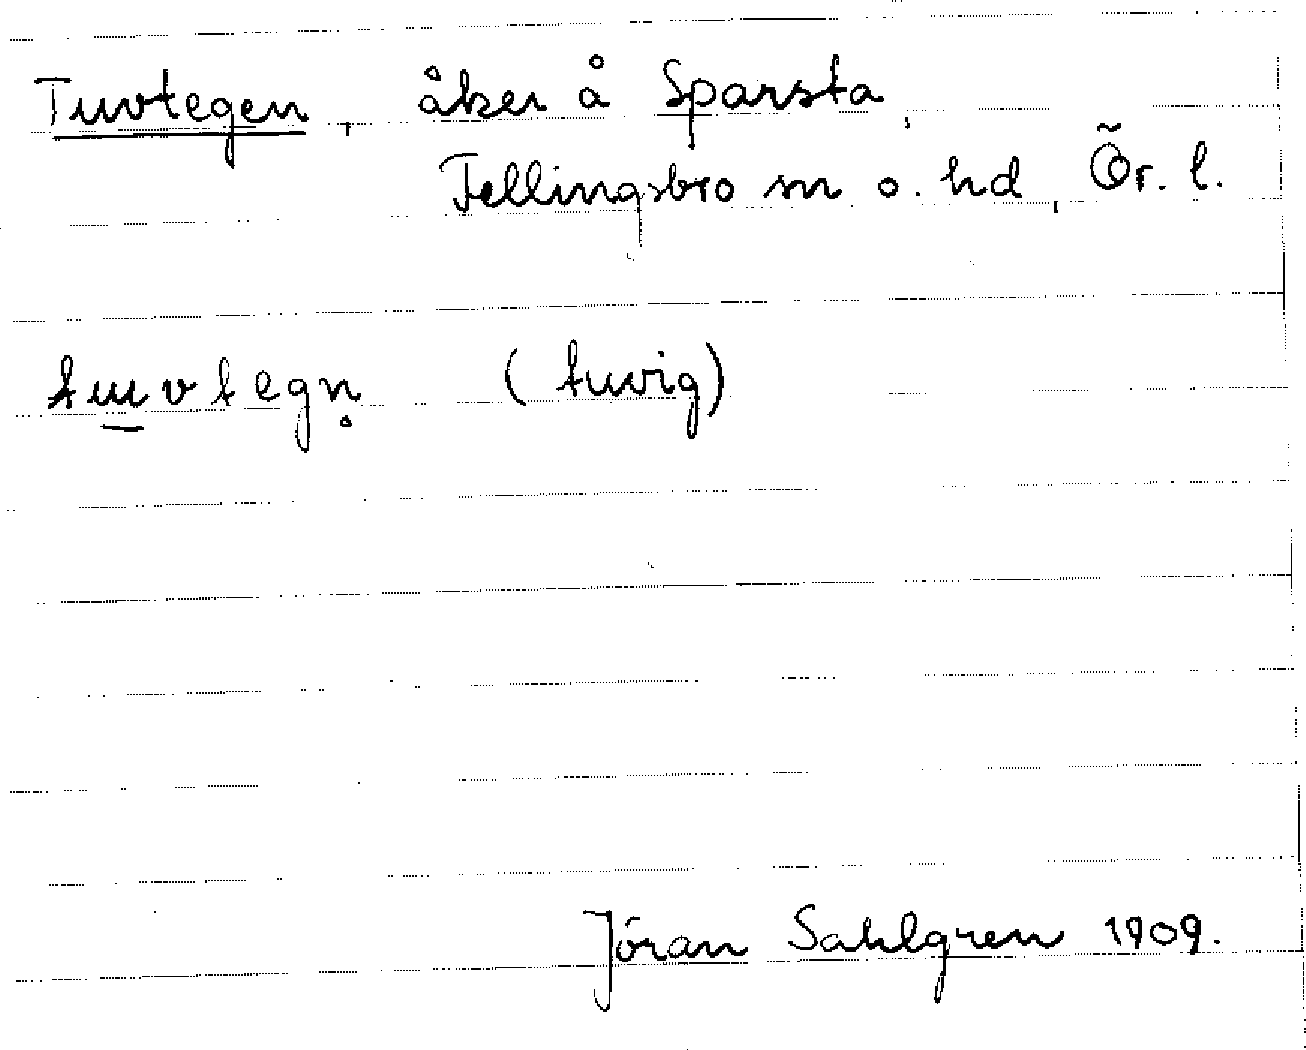 Tuvtegen, åker å Sparsta,
Fellingsbro sn o. hd, Ör. l.
tuvtegn̥ (tuvig)
Jöran Sahlgren 1909.